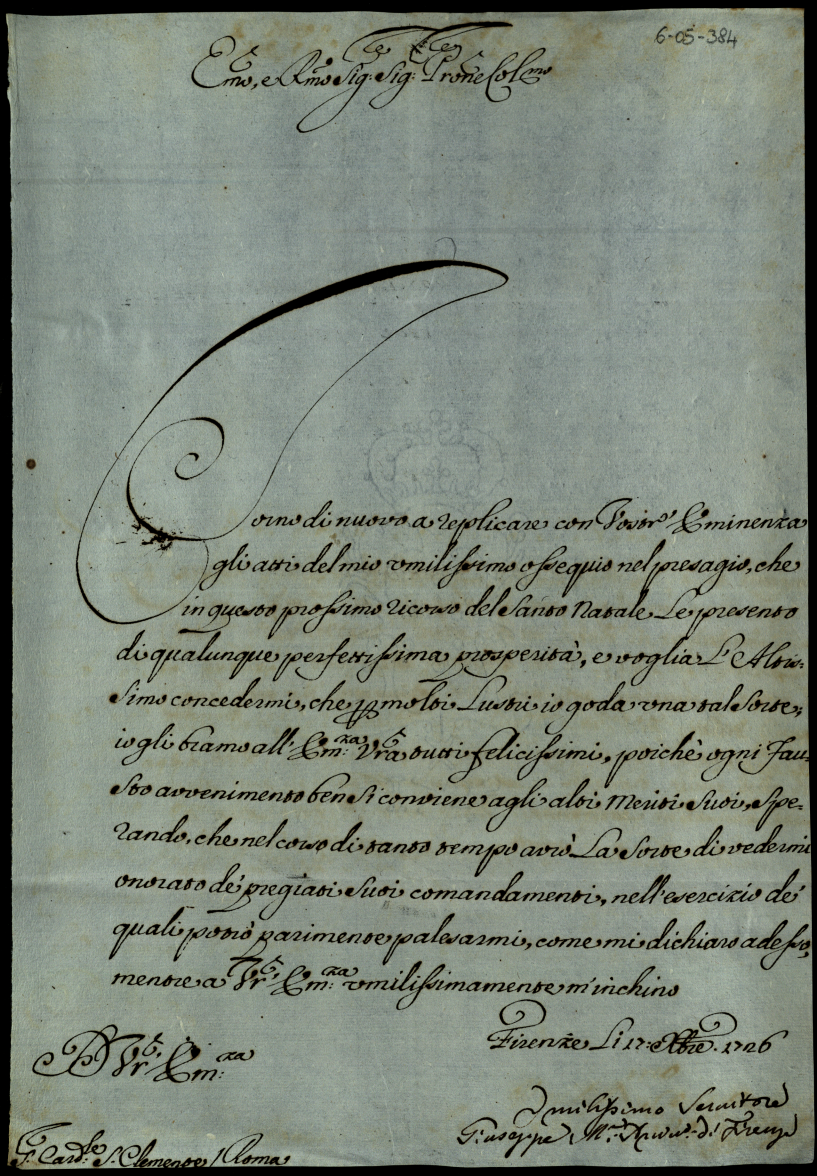 6-05-384
Em̃o, e Rm̃o Sig: Sig: Prone Colmo
Torno di nuovo a replicare con Vostr' Eminenza
gli atti del mio umilissimo ossequio nel presagio, che
in questo prossimo ricorso del Santo Natale Le presento
di qualunque perfettissima prosperità, e voglia L'Altis-
simo concedermi, che p molti Lustri io goda una tal Sorte,
io gli bramo all' Em:za Vr̃a tutti felicissimi, poichè ogni Fau-
sto avvenimento ben si conviene agli alti Meriti Suoi, Spe-
rando, che nel corso di tanto tempo avrò La Sorte di vedermi
onorato de' pregiati Suoi comandamenti, nell' esercizio de'
quali potrò parimente palesarmi, come mi dichiaro adesso,
mentre a Vr̃ Em:za umilissimamente m'inchino
Firenze Li 17: Xbre. 1726
D Vr̃ Em:za
Umilissimo Servitore
Giuseppe Ma. Arciv.o di Firenze
Card.le S. Clemente / Roma